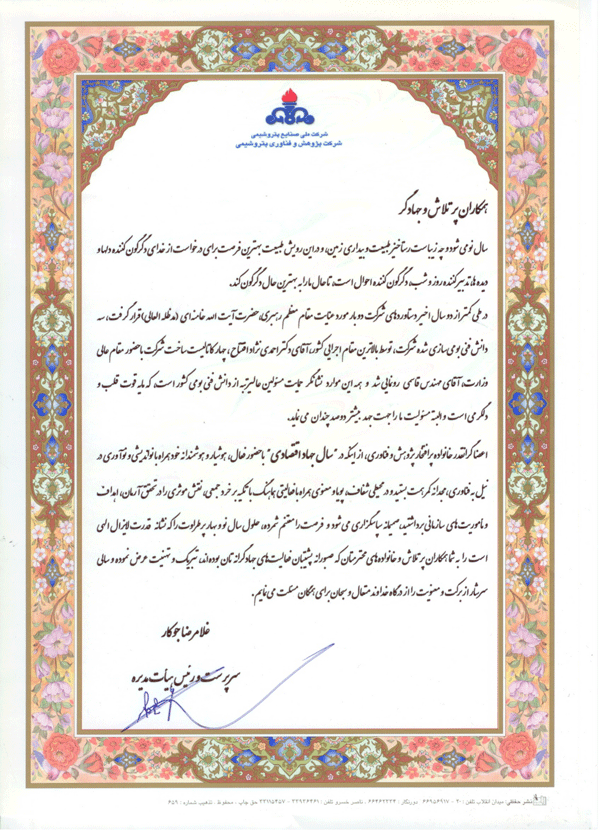 شرکت ملی صنایع پتروشیمی
شرکت پژوهش و فناوری پتروشیمی
همکاران پر تلاش و جهادگر
سال نو می شود و چه زیباست رستاخیز طبیعت و بیداری زمین، و در این رویش طبیعت بهترین فرصت برای درخواست از خدای دگرگون کننده دلها و
دیده ها، تدبیر کننده روز و شب، دگرگون کننده احوال است، تا حال ما را به بهترین حال دگرگون کند.
در طی کمتر از دو سال اخیر دستاوردهای شرکت دو بار مورد عنایت مقام معظم رهبری، حضرت آیت الله خامنه ای (مدظله العالی) قرار گرفت، سه
دانش فنی بومی سازی شده شرکت، توسط بالاترین مقام اجرایی کشور، آقای دکتر احمدی نژاد افتتاح، چهار کاتالیست ساخت شرکت با حضور مقام عالی
وزارت، آقای مهندس قاسمی رونمایی شد و همه این موارد نشانگر حمایت مسئولین عالیرتبه از دانش فنی بومی کشور است، که مایه قوت قلب و
دلگرمی است و البته مسئولیت ما را جهت جهد بیشتر دو صد چندان می نماید.
اعضا گرانقدر خانواده پرافتخار پژوهش و فناوری، از اینکه در "سال جهاد اقتصادی" با حضور فعال، هوشیار و هوشمندانه خود همراه با نواندیشی و نوآوری در
نیل به فناوری، مجدانه کمر همت بستید و در محیطی شفاف، پویا و معنوی همراه با فعالیتی هماهنگ با تکیه بر خرد جمعی، نقش موثری را در تحقق آرمان، اهداف
و ماموریت های سازمانی برداشتید، صمیمانه سپاسگزاری می شود و فرصت را مغتنم شمرده، حلول سال نو و بهار پر طراوت را که نشانه قدرت لایزال الهی
است را به شما همکاران پر تلاش و خانواده های محترمتان که صبورانه پشتیبان فعالیت های جهادگرانه تان بوده اند، تبریک و تهنیت عرض نموده و سالی
سرشار از برکت و معنویت را از درگاه خداوند متعال و سبحان برای همگان مسئلت می نمایم.
غلامرضا جوکار
سرپرست و رئیس هیأت مدیره
نشر حفظی: میدان انقلاب تلفن: ۲۰ - ۶۶۹۵۶۹۱۷ دورنگار: ۶۶۴۶۲۲۲۴ ناصر خسرو تلفن: ۳۳۹۲۶۴۶۱ - ۳۳۱۱۵۳۵۷ حق چاپ محفوظ تذهیب شماره: ۶۵۹